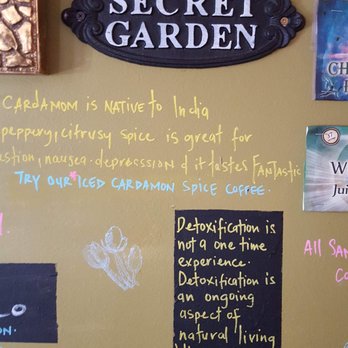 SECRET
GARDEN
CARDAMOM is NATIVE to India
peppery, citrusy spice is great for
nausea. depression & it tastes FanTastic
TRY OUR * ICED CARDAMON SPICE COFFEE.
CH
W
Jui
Detoxification is
not a one time
experience.
Detoxification is
an ongoing
aspect of
natural living
All SAN
CO
ON.